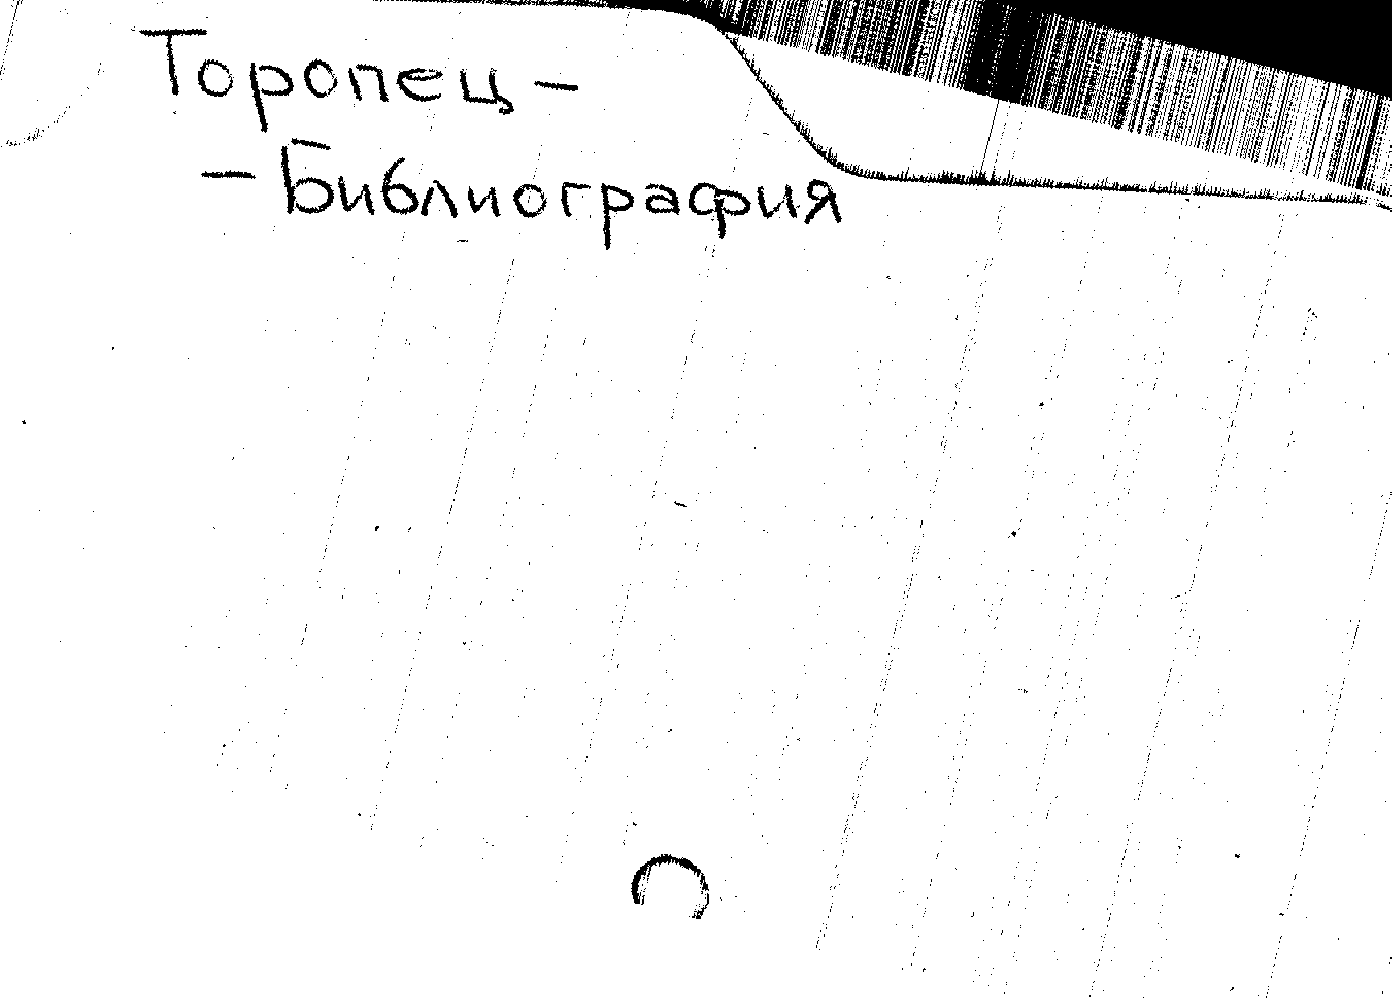 Торопец –
– Библиография